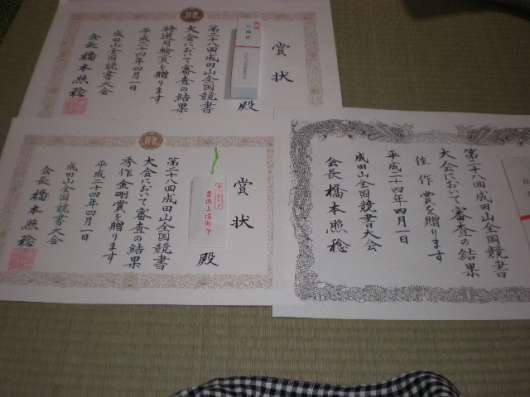 賞状
殿
第二十八回成田山全国競書
大会において審査の結果
特選日輪賞を贈ります
平成二十四年四月一日
成田山全国競書大会
会長 橋本照稔
賞状
殿
第二十八回成田山全国競書
大会において審査の結果
秀作金剛賞を贈ります
平成二十四年四月一日
成田山全国競書大会
会長 橋本照稔
第二十八回成田山全国競書
大会において審査の結果
佳作賞を贈ります
平成二十四年四月一日
成田山全国競書大会
会長 橋本照稔